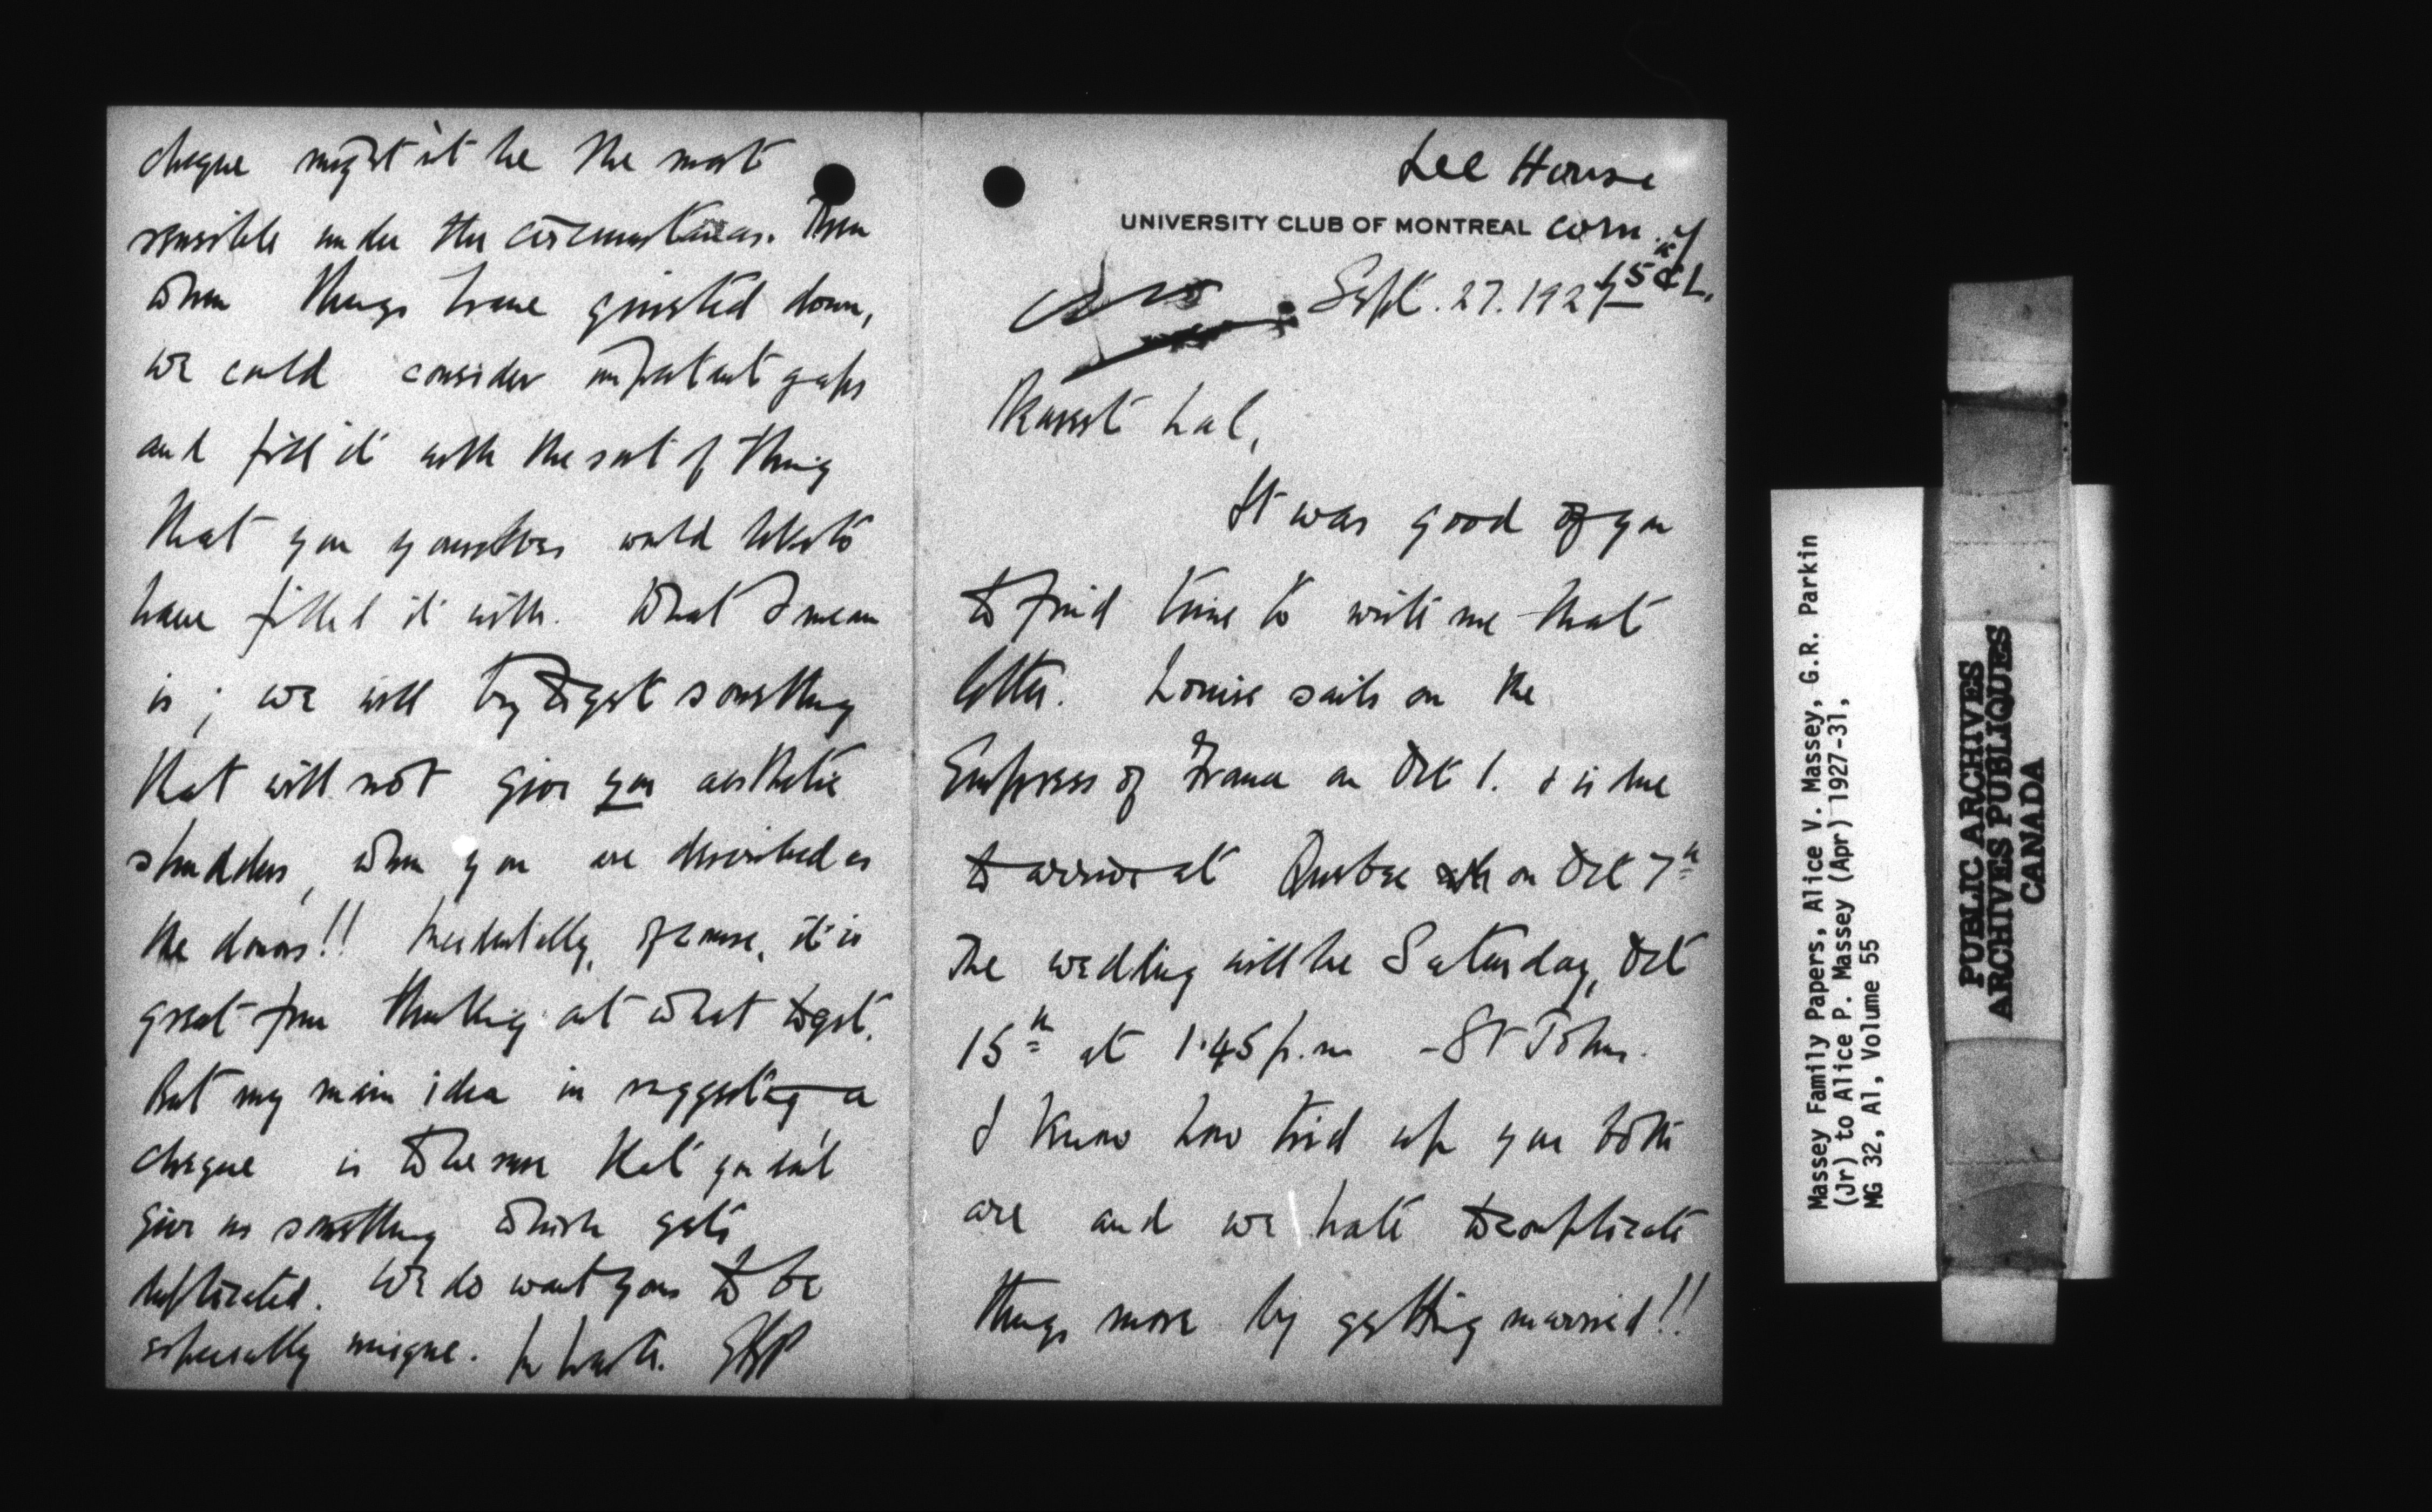 Lee House
UNIVERSITY CLUB OF MONTREAL corn. of
15th & L.
Sept. 27. 1927
Dearest Lal,
It was good of you
to find time to write me that
letter. Louise sails on the
Empress of France on Oct 1. & is due
to arrive at Quebec on Oct 7th
The wedding will be Saturday, Oct
15th at 1.45 p.m - St Johns.
I know how tied up you both
are and we hate to complicate
things more by getting married!!
cheque might it be the most
sensible under the circumstances. Then
when things have quieted down,
we could consider important gaps
and fill it with the sort of thing
that you yourselves would like to
have filled it with. What I mean
is; we will try to get something
that will not give you aesthetic
shudders, when you are described as
the donors!! Incidentally, of course, it is
great fun thinking out what to get.
But my main idea in suggesting a
cheque is to be sure that you don't
give us something which gets
duplicated. We do want yours to be
especially unique. In haste.
Massey Family Papers, Alice V. Massey, G.R. Parkin
(Jr) to Alice P. Massey (Apr) 1927-31,
MG 32, A1, Volume 55
PUBLIC ARCHIVES
ARCHIVES PUBLIQUES
CANADA